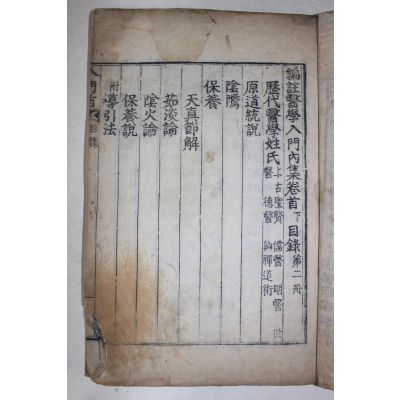 編註醫學入門內集卷首下目錄 第二冊
歷代醫學姓氏 上古聖賢 儒醫 明醫 世醫 德醫 仙禪道術
原道統說
陰隲
保養
天真節解
茹淡論
陰火論
保養說
附 導引法
入門首 目錄